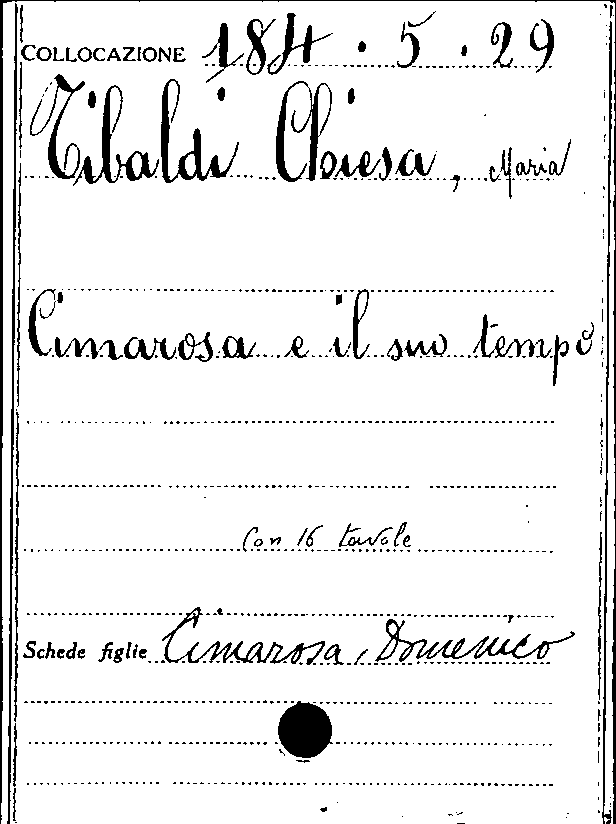 COLLOCAZIONE 184 . 5 . 29
Tibaldi Chiesa, Maria
Cimarosa e il suo tempo
Con 16 tavole
Schede figlie Cimarosa, Domenico